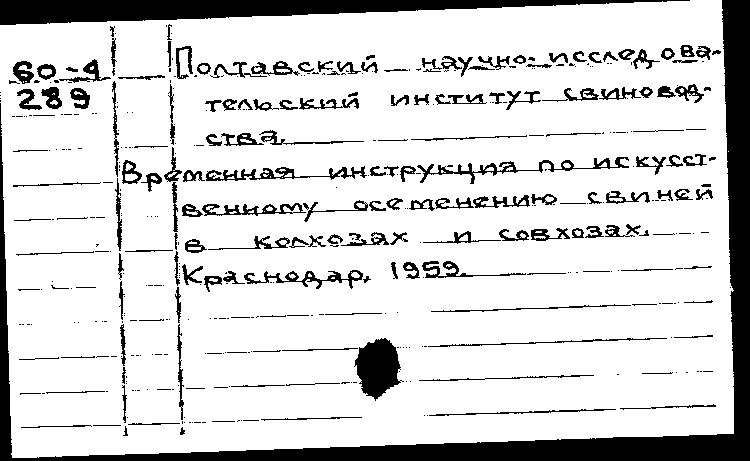 60-4
289
Полтавский научно-исследова-
тельский институт свиновод-
ства.
Временная инструкция по искусст-
венному осеменению свиней
в колхозах и совхозах.
Краснодар, 1959.